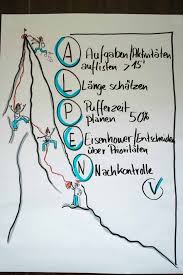 A Aufgaben/Aktivitäten
auflisten >15'
L Länge schätzen
P Pufferzeit
planen 50%
E Eisenhower/Entscheiden
über Prioritäten
N Nachkontrolle